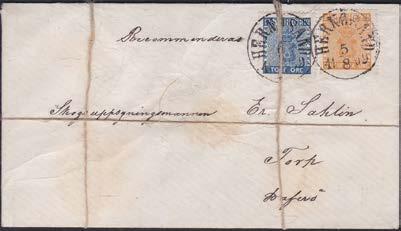 Recommenderas
HERNÖSAND
TOLF ÖRE
HERNÖSAND
5
11 8
Skogsuppsyningsmannen Er. Sahlin
Torp
Hafverö